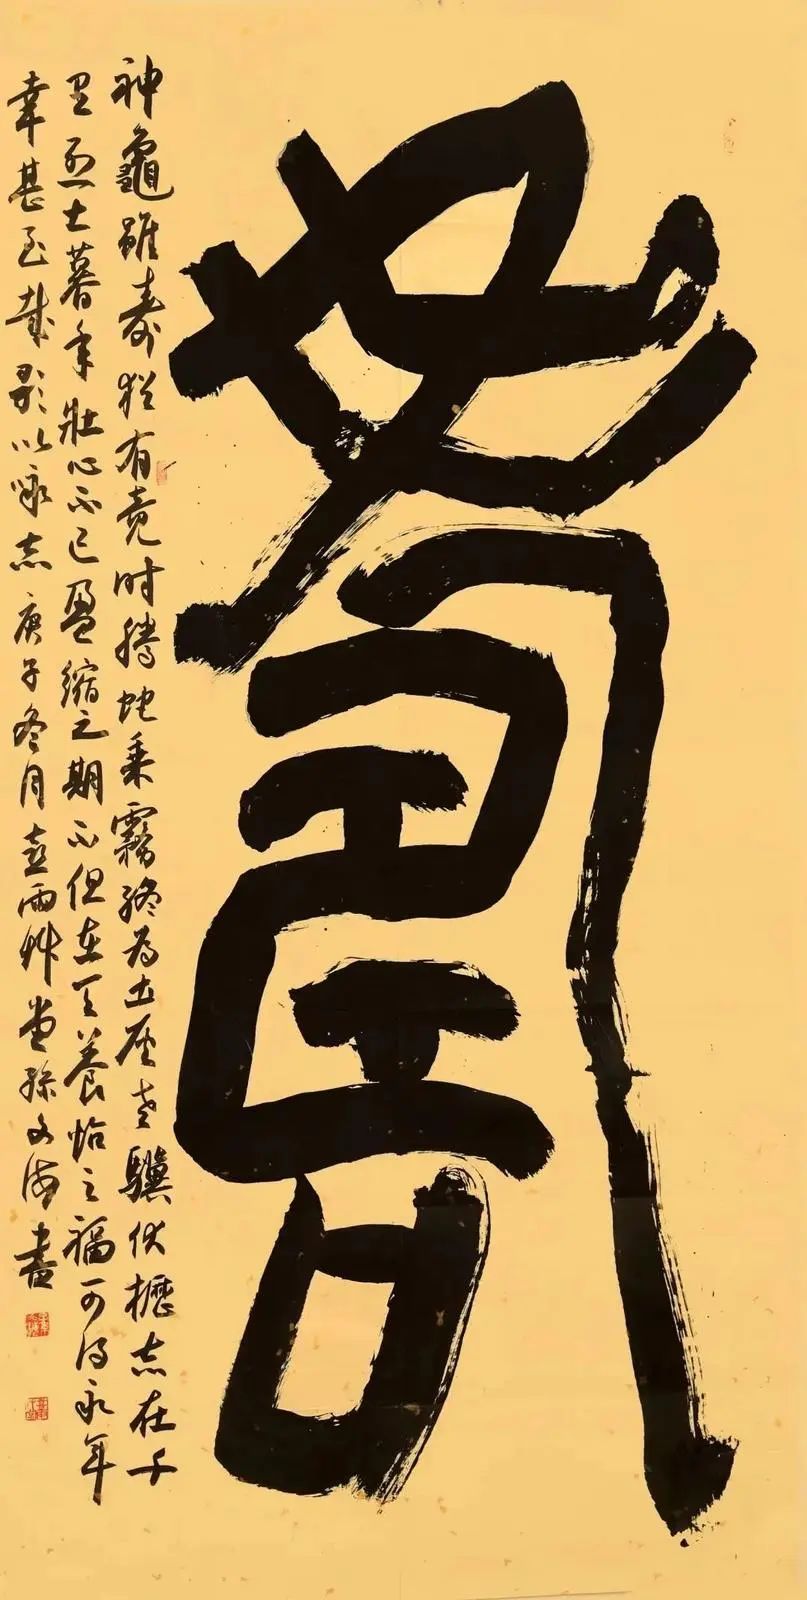 壽
神龜雖壽猶有竟時騰蛇乘霧終為土灰老驥伏櫪志在千
里烈士暮年壯心不已盈縮之期不但在天養怡之福可得永年
幸甚至哉歌以咏志庚子冬月喜雨艸堂孫文海書